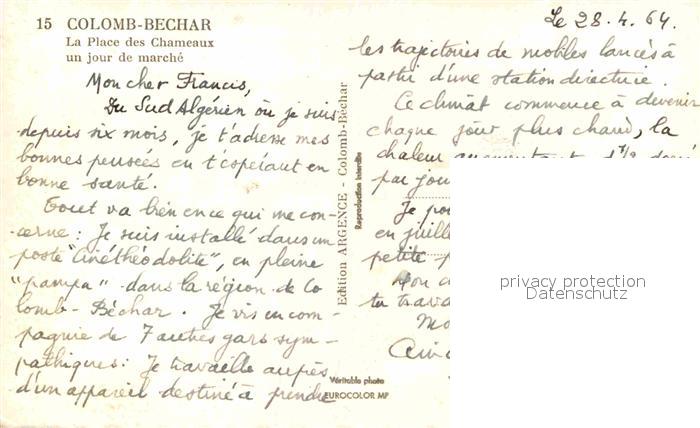 15 COLOMB-BECHAR
La Place des Chameaux
un jour de marché
Mon cher Francis,
Du Sud Algérien où je suis
depuis six mois, je t'adresse mes
bonnes pensées en t'espérant en
bonne santé.
Tout va bien en ce qui me con-
cerne : Je suis installé dans un
poste "Cinéthéodolite", en pleine
"pampa" dans la région de Co
lomb-Béchar. Je vis en com-
pagnie de 7 autres gars sym-
pathiques : Je travaille auprès
d'un appareil destiné à prendre
Edition ARGENCE - Colomb-Béchar
Reproduction interdite
Véritable photo
EUROCOLOR MP
Le 28.4.64.
les trajectoires de mobiles lancés à
partir d'une station directrice.
Ce climat commence à devenir
chaque jour plus chaud, la
chaleur augmentant
par jou
Je
en juill
petite
tu trava
privacy protection
Datenschutz